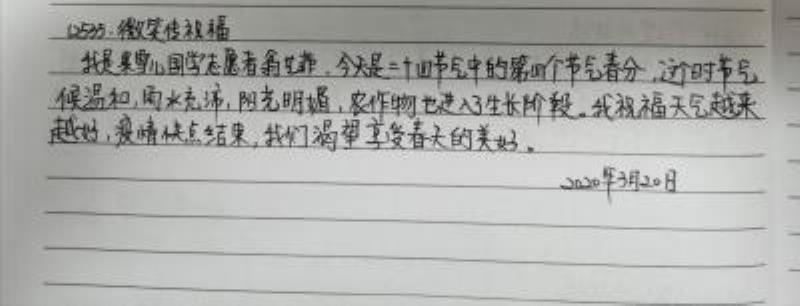 12535.微笑传祝福
我是果儿国学志愿者，今天是二十四节气中的第四个节气春分，这时节气
候温和，雨水充沛，阳光明媚，农作物也进入了生长阶段。我祝福天气越来
越好，疫情快点结束，我们渴望享受春天的美好。
2020年3月20日